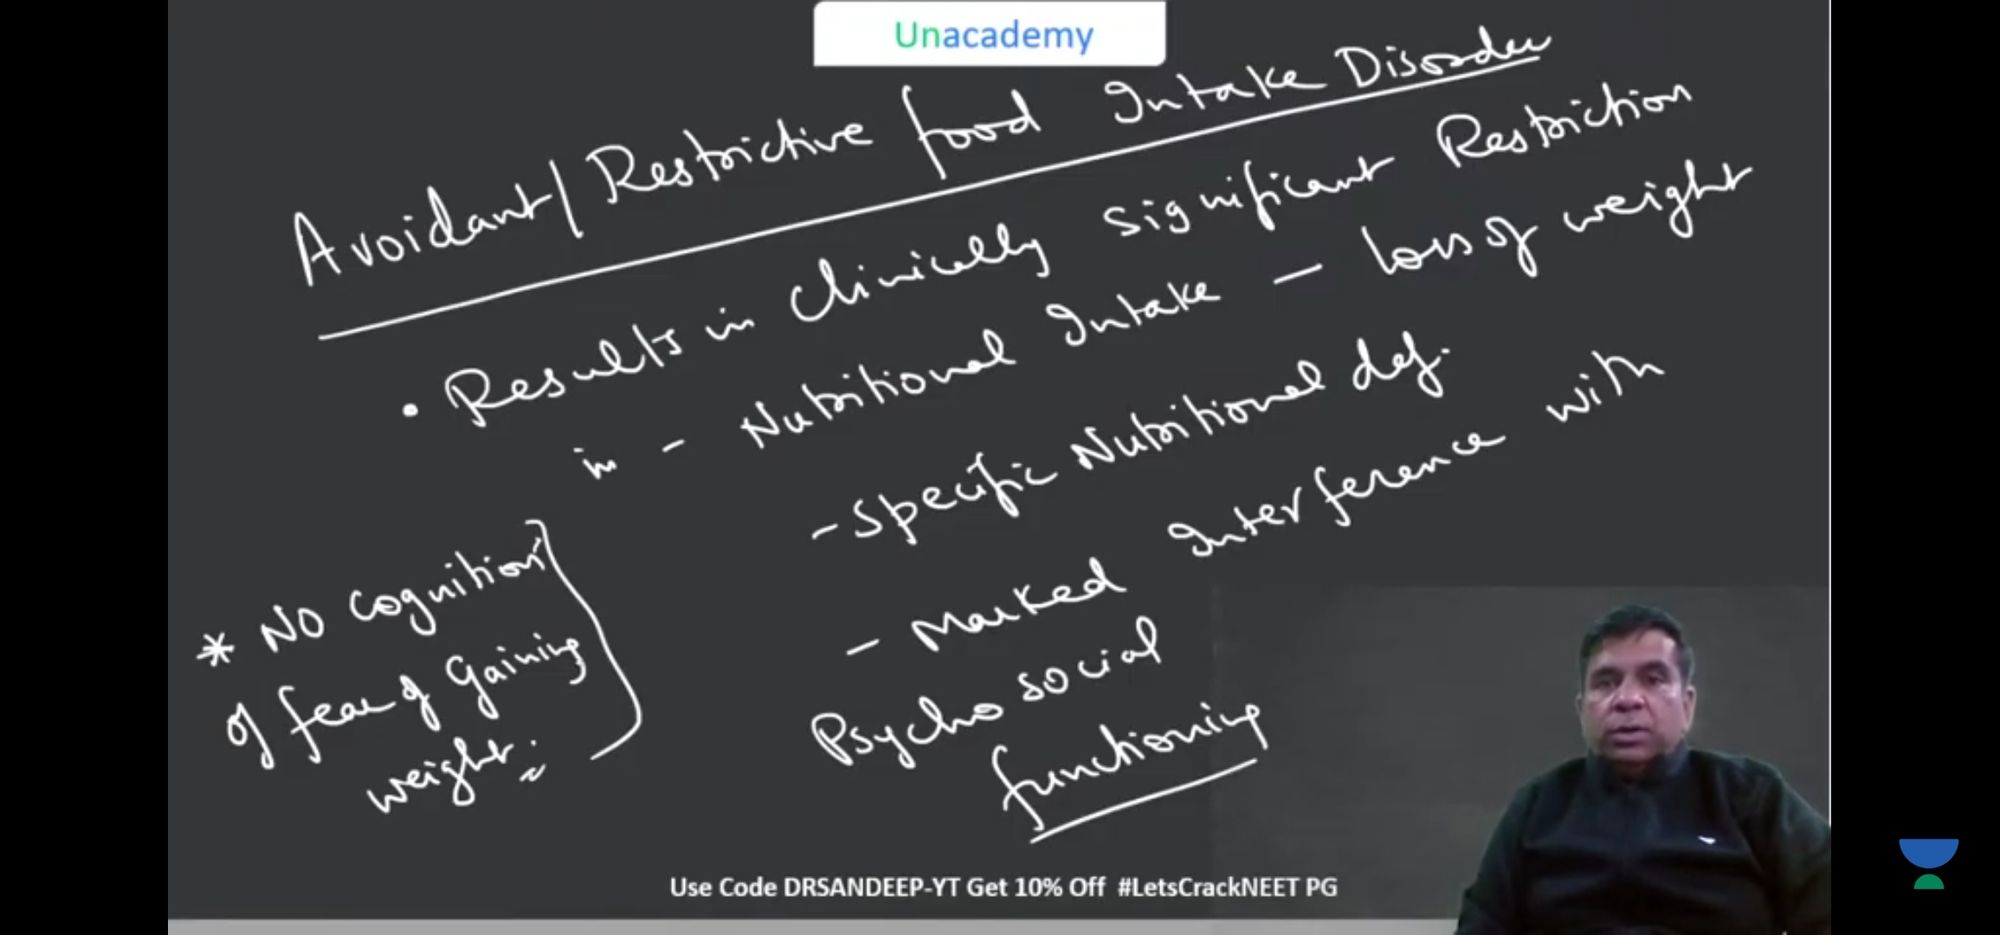 Unacademy
Avoidant/Restrictive food Intake Disorder
• Results in clinically significant Restriction
in - Nutritional Intake - loss of weight
- Specific Nutritional def.
- Marked Interference with
Psychosocial
functioning
* NO cognition
of fear of gaining
weight.
Use Code DRSANDEEP-YT Get 10% Off #LetsCrackNEET PG